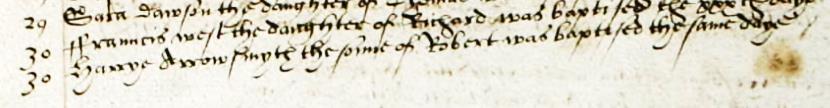 29 Sara Dawson the daughter of was baptised the xxix
30 ffranncis west the daughter of Richard was baptised the xxx
30 Harrye Arrowsmyth the sonne of Robert was baptised the same daye